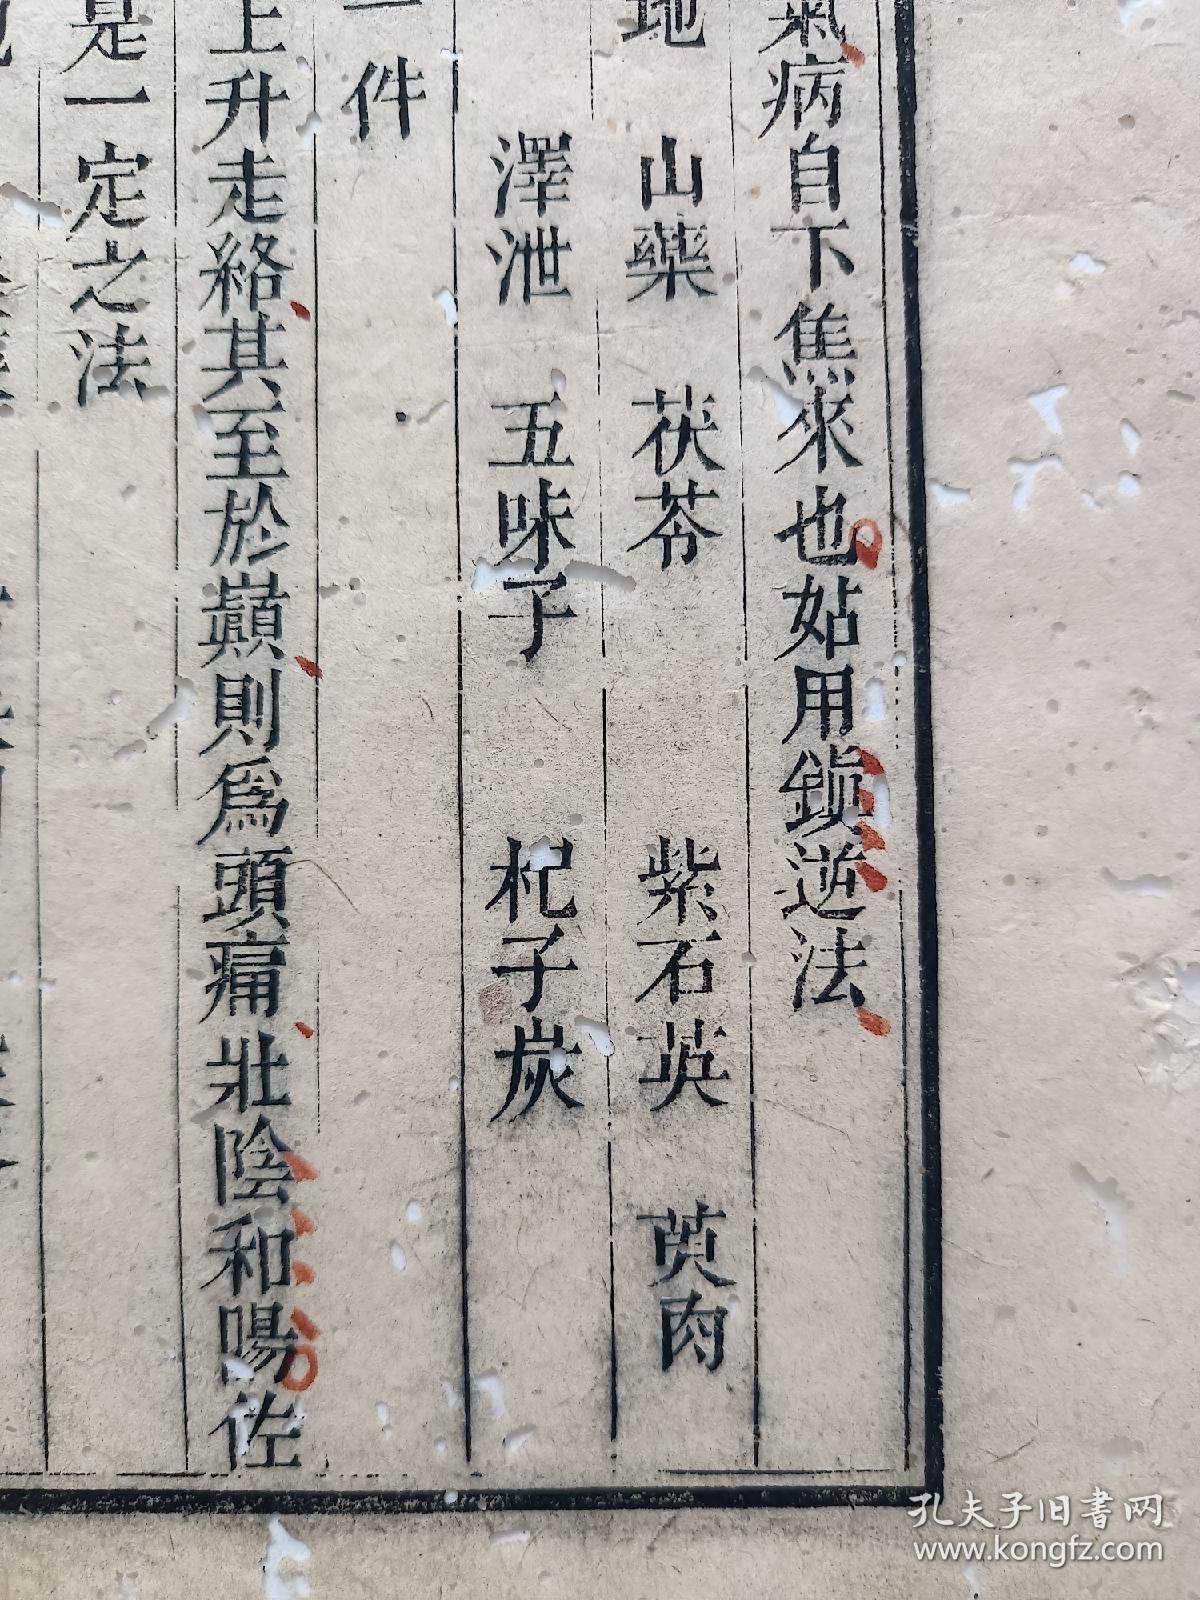 氣病自下焦來也姑用鎮逆法
地 山藥 茯苓 紫石英 萸肉
澤泄 五味子 杞子炭
一件
上升走絡其至於巔則為頭痛壯陰和陽佐
是一定之法
孔夫子旧书网
www.kongfz.com